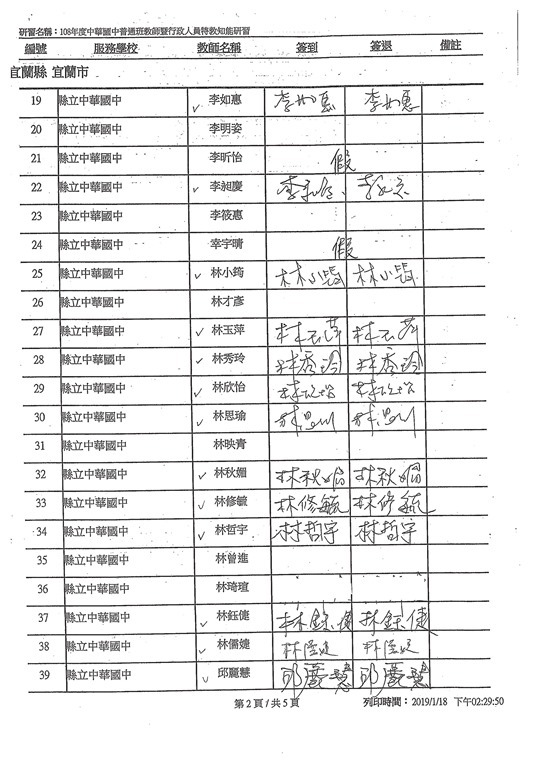 研習名稱：108年度中華國中普通班教師暨行政人員特教知能研習
編號 服務學校 教師名稱 簽到 簽退 備註
宜蘭縣 宜蘭市
19 縣立中華國中 ✓ 李如惠 李如惠 李如惠
20 縣立中華國中 李明姿
21 縣立中華國中 李昕怡 假
22 縣立中華國中 ✓ 李昶慶
23 縣立中華國中 李筱惠
24 縣立中華國中 幸宇晴 假
25 縣立中華國中 ✓ 林小筠 林小筠 林小筠
26 縣立中華國中 林才彥
27 縣立中華國中 ✓ 林玉萍 林玉萍 林玉萍
28 縣立中華國中 ✓ 林秀玲 林秀玲 林秀玲
29 縣立中華國中 ✓ 林欣怡 林欣怡 林欣怡
30 縣立中華國中 ✓ 林思瑜
31 縣立中華國中 林映青
32 縣立中華國中 ✓ 林秋媚 林秋媚 林秋媚
33 縣立中華國中 ✓ 林修毓 林修毓 林修毓
34 縣立中華國中 ✓ 林哲宇 林哲宇 林哲宇
35 縣立中華國中 林曾進
36 縣立中華國中 林琦瑄
37 縣立中華國中 ✓ 林鈺倢
38 縣立中華國中 ✓
39 縣立中華國中 ✓ 邱麗慧 邱麗慧 邱麗慧
第 2 頁 / 共 5 頁 列印時間：2019/1/18 下午02:29:50